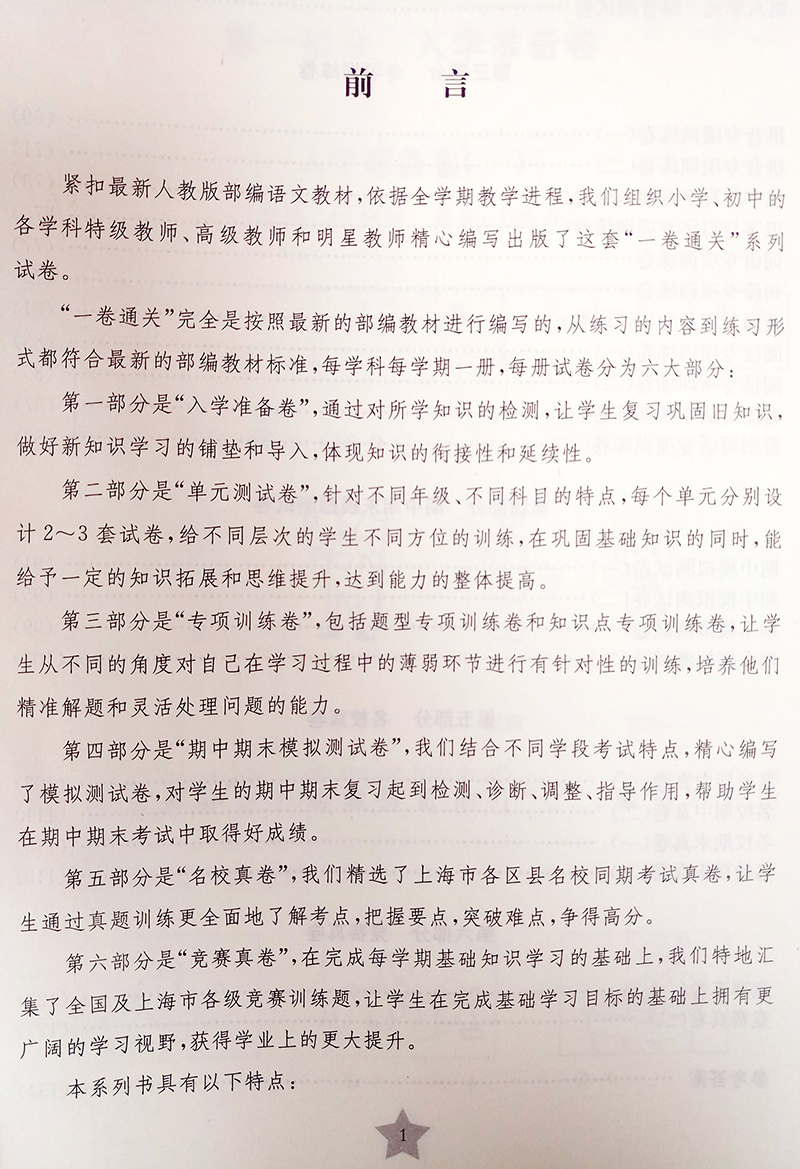 前 言
紧扣最新人教版部编语文教材,依据全学期教学进程,我们组织小学、初中的
各学科特级教师、高级教师和明星教师精心编写出版了这套“一卷通关”系列
试卷。
“一卷通关”完全是按照最新的部编教材进行编写的,从练习的内容到练习形
式都符合最新的部编教材标准,每学科每学期一册,每册试卷分为六大部分:
第一部分是“入学准备卷”,通过对所学知识的检测,让学生复习巩固旧知识,
做好新知识学习的铺垫和导入,体现知识的衔接性和延续性。
第二部分是“单元测试卷”,针对不同年级、不同科目的特点,每个单元分别设
计2~3套试卷,给不同层次的学生不同方位的训练,在巩固基础知识的同时,能
给予一定的知识拓展和思维提升,达到能力的整体提高。
第三部分是“专项训练卷”,包括题型专项训练卷和知识点专项训练卷,让学
生从不同的角度对自己在学习过程中的薄弱环节进行有针对性的训练,培养他们
精准解题和灵活处理问题的能力。
第四部分是“期中期末模拟测试卷”,我们结合不同学段考试特点,精心编写
了模拟测试卷,对学生的期中期末复习起到检测、诊断、调整、指导作用,帮助学生
在期中期末考试中取得好成绩。
第五部分是“名校真卷”,我们精选了上海市各区县名校同期考试真卷,让学
生通过真题训练更全面地了解考点,把握要点,突破难点,争得高分。
第六部分是“竞赛真卷”,在完成每学期基础知识学习的基础上,我们特地汇
集了全国及上海市各级竞赛训练题,让学生在完成基础学习目标的基础上拥有更
广阔的学习视野,获得学业上的更大提升。
本系列书具有以下特点:
1